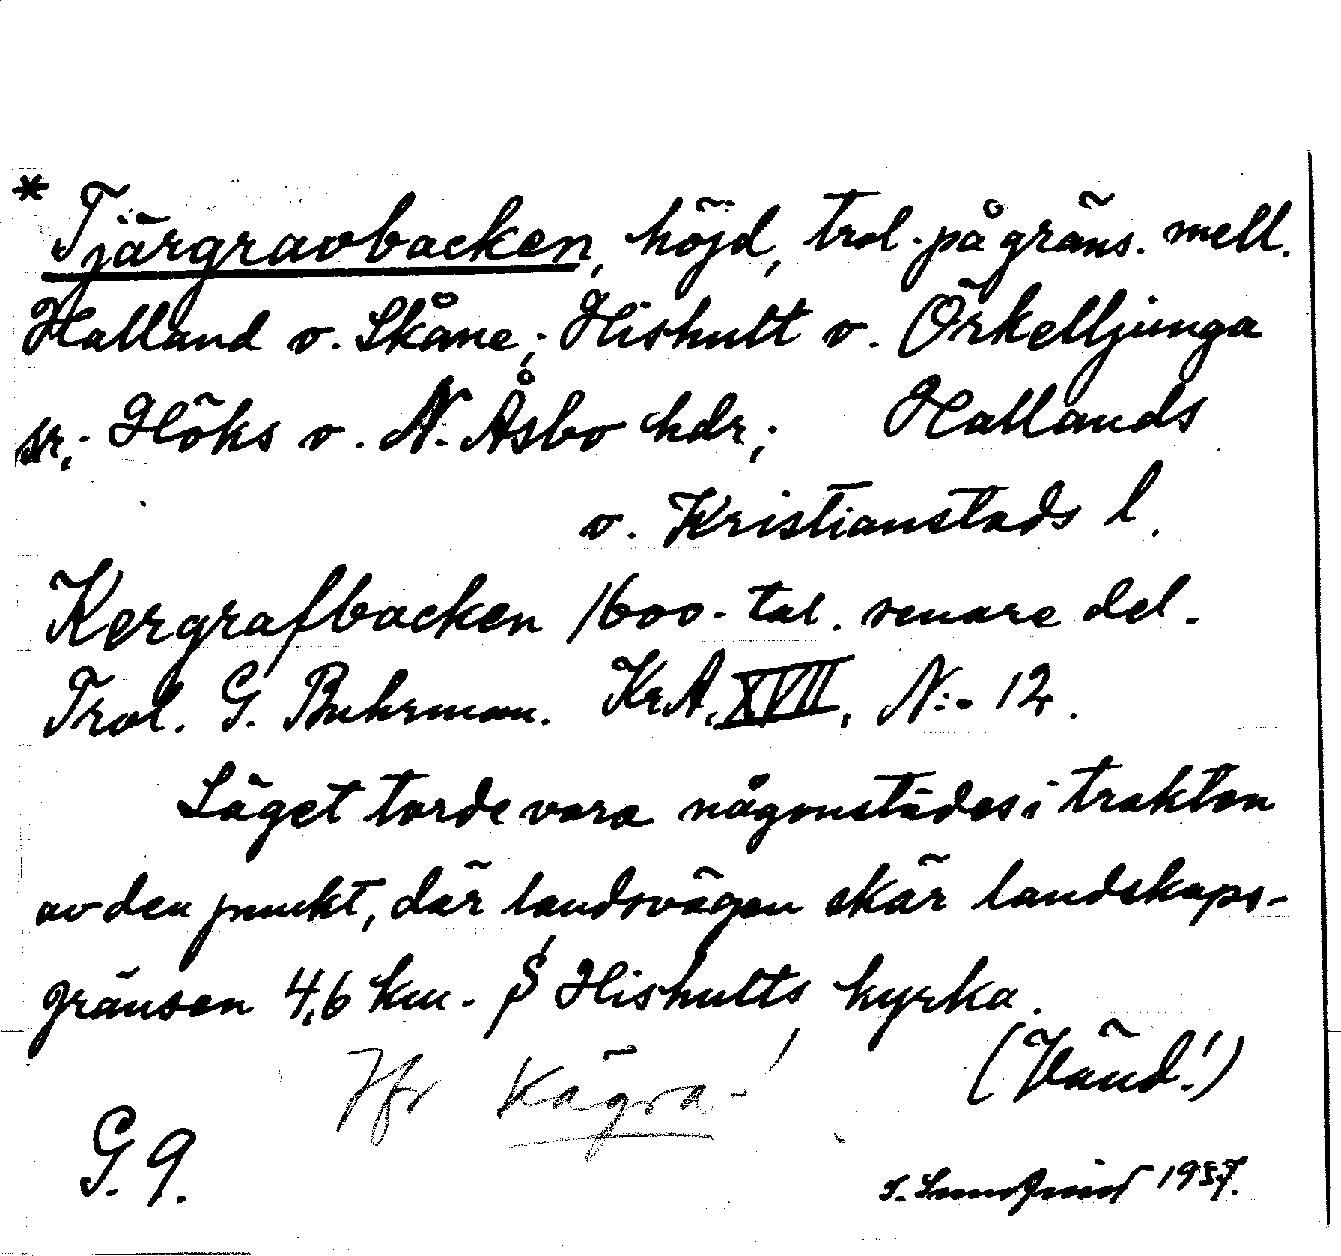 * Tjärgravbacken, höjd, trol. på gräns. mell.
Halland o. Skåne; Hishult o. Örkelljunga
sr; Höks o. N. Åsbo hdr; Hallands
o. Kristianstads l.
Kergrafbacken 1600-tal. senare del.
Trol. G. Buhrman. KrA, XVII, N:o 12.
Läget torde vara någonstädes i trakten
av den punkt, där landsvägen skär landskaps-
gränsen 4,6 km. S Hishults kyrka.
(Vänd!)
Jfr Kägra-!
G. 9.
1937.